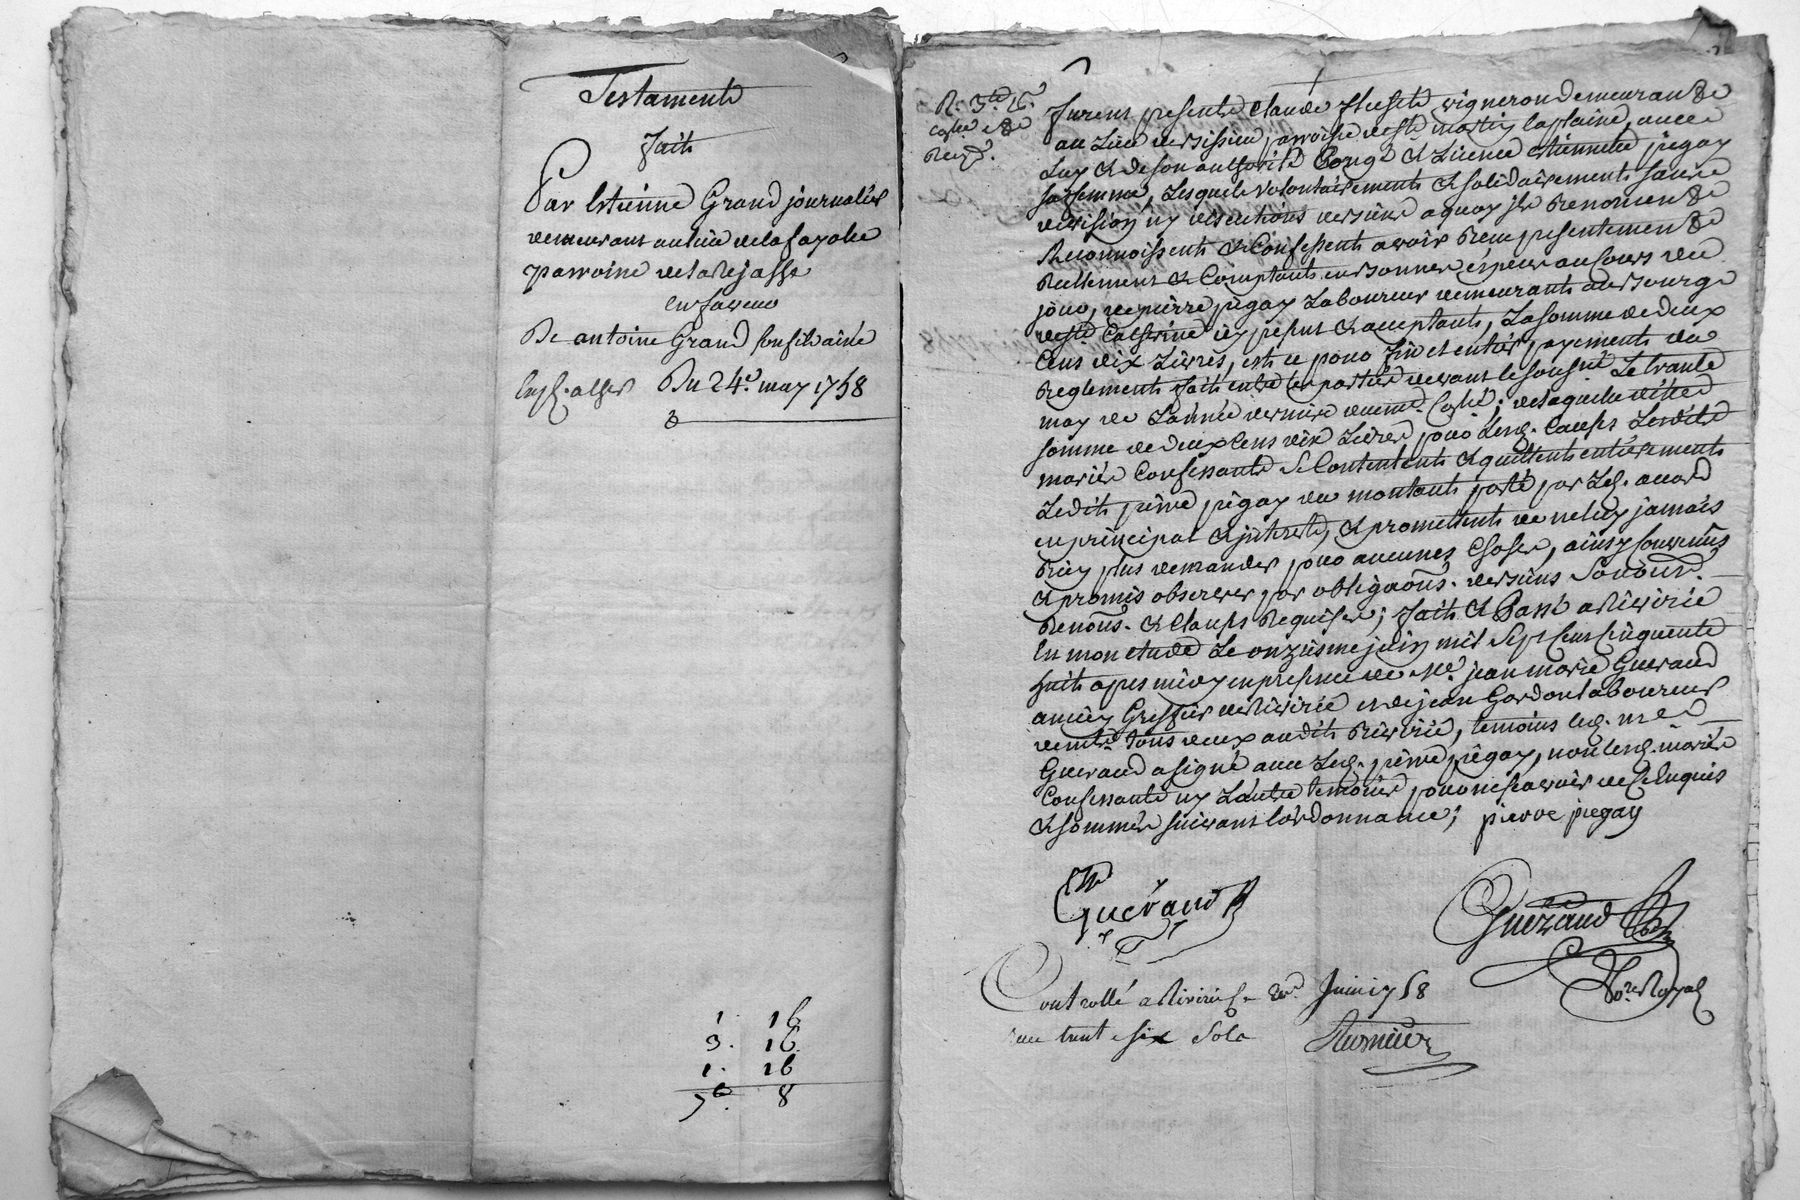 Testament
fait
Par Estienne Grand journalier
demeurant au lieu de la fayolle
parroisse de la Rejasse
en faveur
De antoine Grand son fils ainé
Du 24e. may 1758
1. 16
3. 16
1. 16
7. 8
furent presents Claude vigneron demeurant
au Lieu de parroisse de st martin laplaine, avec
Luy & de son authorité Congé & Licence estiennette pegay
sa femme, Lesquels volontairements & solidairements sans
division ny discutions a quoy ils Renoncent
Reconnoissents & Confessents avoir Receu presentement
Reellement & Comptants en bonnes espece au Cours du
jour, de pierre pegay Laboureur demeurants
de ste Catherine icy present & acceptants, La somme de deux
Cens dix Livres, est ce pour fin et entier payements du
Reglements faits entre les parties devant le sousigné Le trante
may de L'année derniere ; de laquelle ditte
somme de deux Cens dix Livres pour Lesd. Causes Lesdits
mariés Confessants se Contentents & quittents entierements
Ledit pierre pegay du montants porté par Led. accord
en principal & interets, & promettents de ne luy jamais
Rien plus demander pour aucunes Choses, ainsy Convenus
& promis observer par obligaons.
Renons. & Clauses Requises; faits & Passé a Riverie
En mon etude Le onzieme juin mil Sept Cens Cinquante
huit apres midy en presence de Me. jean marie Guerand
ancien Greffier de Riverie et de jean Gardon laboureur
demts. tous deux audit Riverie, temoins led. me.
Guerand a signé avec Led. pierre pegay, non lesd. mariés
Confessants ny L'autre temoins pour ne scavoir de ce Enquis
& sommés suivant l'ordonnance; pierre pegay
Guerand
Guerand
No.re Royal
Controllé a Riverie Le Juin 1758
trent six Sols